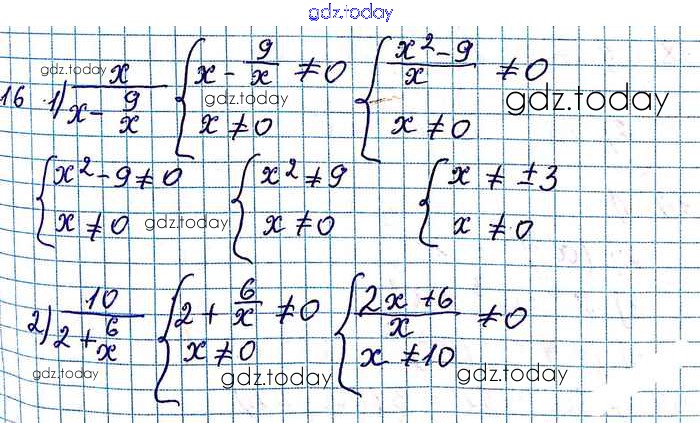 gdz.today
16 1) x/(x - 9/x) { x - 9/x ≠ 0 { (x² - 9)/x ≠ 0
gdz.today
x ≠ 0 gdz.today x ≠ 0 gdz.today
{ x² - 9 ≠ 0 { x² ≠ 9 { x ≠ ±3
x ≠ 0 gdz.today x ≠ 0 x ≠ 0 gdz.today
2) 10/(2 + 6/x) { 2 + 6/x ≠ 0 { (2x + 6)/x ≠ 0
x ≠ 0 x ≠ 10
gdz.today gdz.today gdz.today